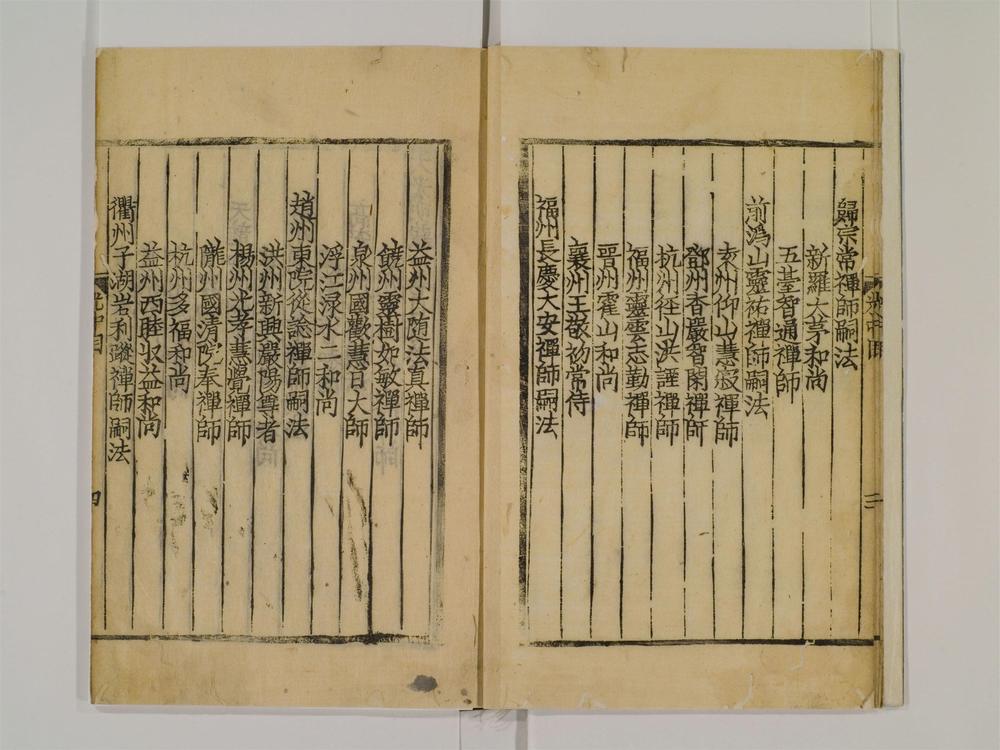 歸宗常禪師嗣法
新羅大茅和尚
五臺智通禪師
前潙山靈祐禪師嗣法
袁州仰山慧寂禪師
鄧州香嚴智閑禪師
杭州徑山洪諲禪師
福州靈雲志勤禪師
晋州霍山和尚
襄州王敬初常侍
福州長慶大安禪師嗣法
三
益州大随法真禪師
饒州靈樹如敏禪師
泉州國歡慧日大師
浮江渌水二和尚
趙州東院從諗禪師嗣法
洪州新興嚴陽尊者
楊州光孝慧覺禪師
隴州國清院奉禪師
杭州多福和尚
益州西睦和尚
衢州子湖岩利蹤禪師嗣法
四